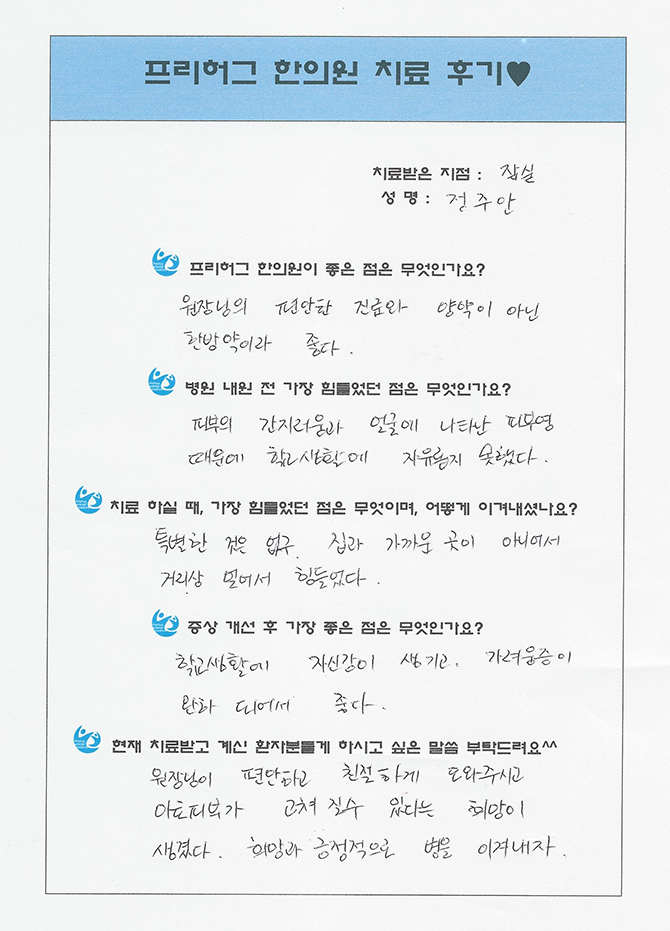 프리허그 한의원 치료 후기♥
치료받은 지점 : 잠실
성 명 : 정주안
프리허그 한의원이 좋은 점은 무엇인가요?
원장님의 편안한 진료와 양약이 아닌
한방약이라 좋다.
병원 내원 전 가장 힘들었던 점은 무엇인가요?
피부의 간지러움과 얼굴에 나타난 피부염
때문에 학교생활에 자유롭지 못했다.
치료 하실 때, 가장 힘들었던 점은 무엇이며, 어떻게 이겨내셨나요?
특별한 것은 없구. 집과 가까운 곳이 아니어서
거리상 멀어서 힘들었다.
증상 개선 후 가장 좋은 점은 무엇인가요?
학교생활에 자신감이 생기고. 가려움증이
완화 되어서 좋다.
현재 치료받고 계신 환자분들게 하시고 싶은 말씀 부탁드려요^^
원장님이 편안하고 친절하게 도와주시고
아토피부가 고쳐 질수 있다는 희망이
생겼다. 희망과 긍정적으로 병을 이겨내자.